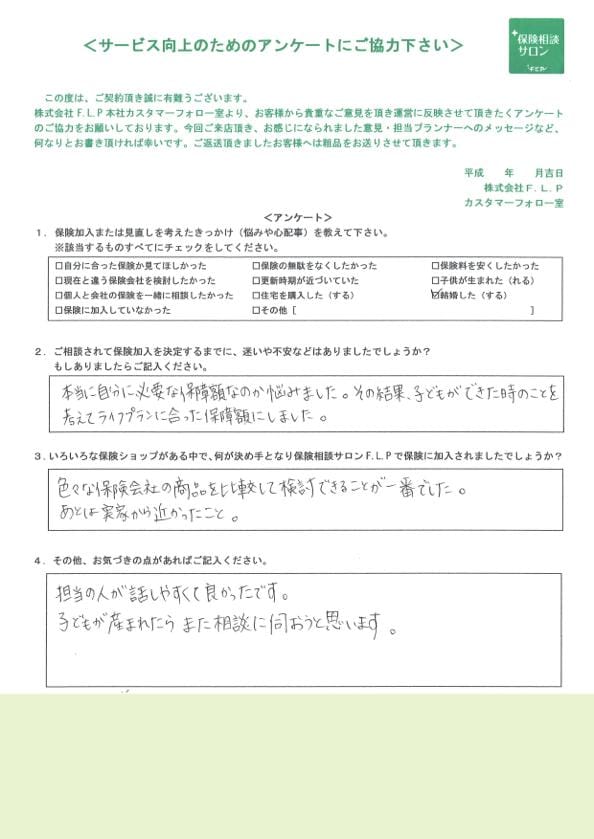 ＜サービス向上のためのアンケートにご協力下さい＞
+保険相談
サロン
F.L.P
この度は、ご契約頂き誠に有難うございます。
株式会社F.L.P本社カスタマーフォロー室より、お客様から貴重なご意見を頂き運営に反映させて頂きたくアンケート
のご協力をお願いしております。今回ご来店頂き、お感じになられました意見・担当プランナーへのメッセージなど、
何なりとお書き頂ければ幸いです。ご返送頂きましたお客様へは粗品をお送りさせて頂きます。
平成　　年　　月吉日
株式会社F.L.P
カスタマーフォロー室
＜アンケート＞
1．保険加入または見直しを考えたきっかけ（悩みや心配事）を教えて下さい。
※該当するものすべてにチェックをしてください。
□自分に合った保険か見てほしかった　□保険の無駄をなくしたかった　□保険料を安くしたかった
□現在と違う保険会社を検討したかった　□更新時期が近づいていた　□子供が生まれた（れる）
□個人と会社の保険を一緒に相談したかった　□住宅を購入した（する）　☑結婚した（する）
□保険に加入していなかった　□その他［　　　　］
2．ご相談されて保険加入を決定するまでに、迷いや不安などはありましたでしょうか？
もしありましたらご記入ください。
本当に自分に必要な保障額なのか悩みました。その結果、子どもができた時のことを
考えてライフプランに合った保障額にしました。
3．いろいろな保険ショップがある中で、何が決め手となり保険相談サロンF.L.Pで保険に加入されましたでしょうか？
色々な保険会社の商品を比較して検討できることが一番でした。
あとは実家から近かったこと。
4．その他、お気づきの点があればご記入ください。
担当の人が話しやすくて良かったです。
子どもが産まれたら また相談に伺おうと思います。